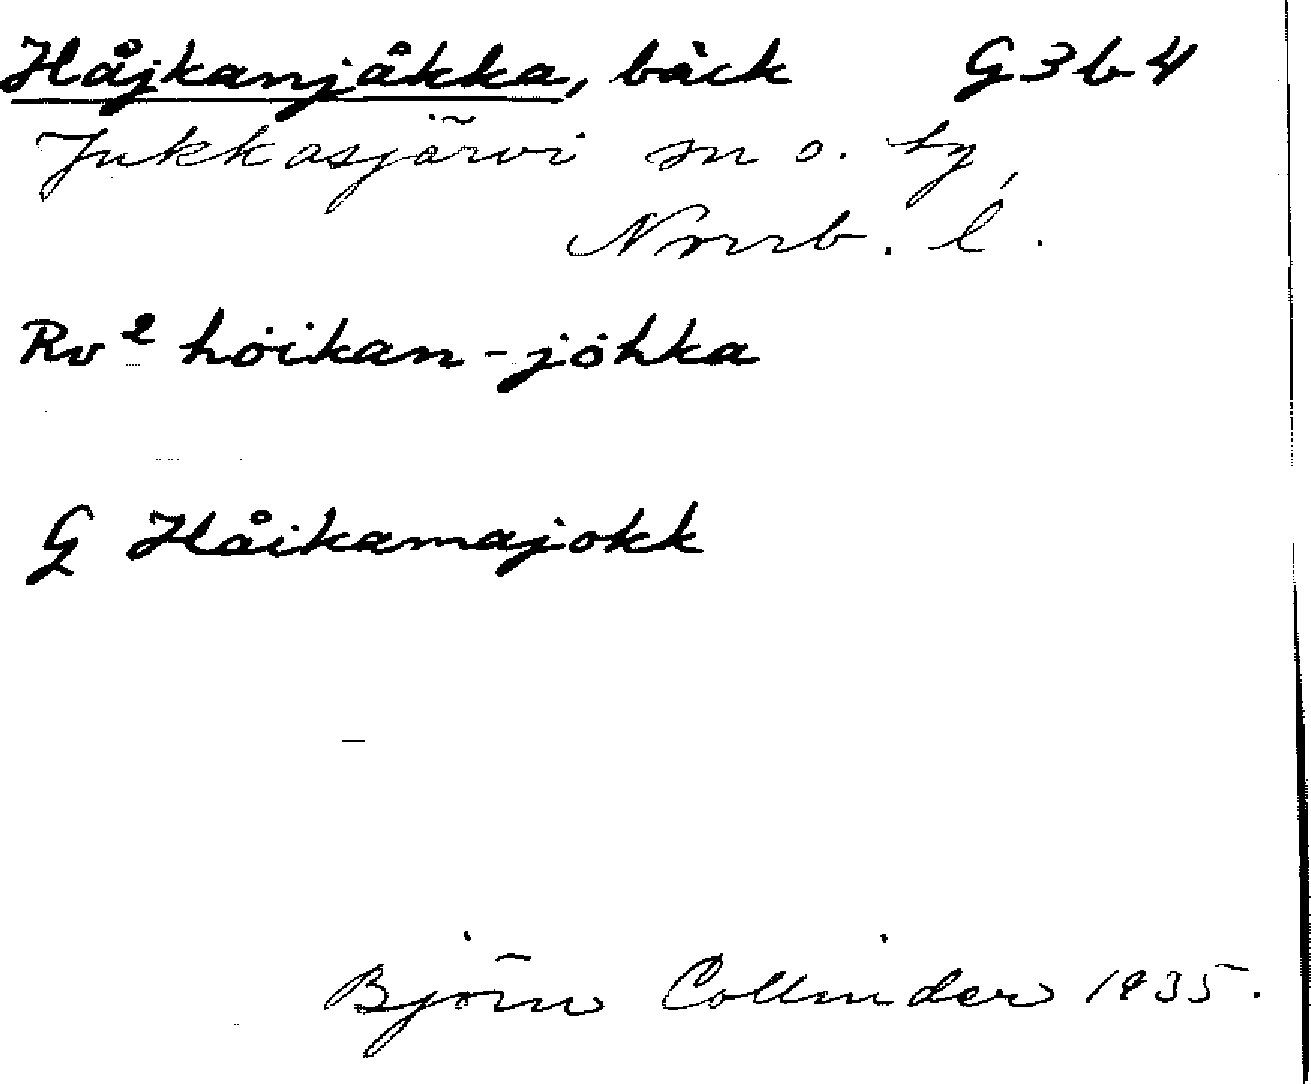 Håjkanjåkka, bäck G3b4
Jukkasjärvi sn o. ty,
Norrb. l.
Rv² hȯikan-jȯhka
G Håikamajokk
Björn Collinder 1935.